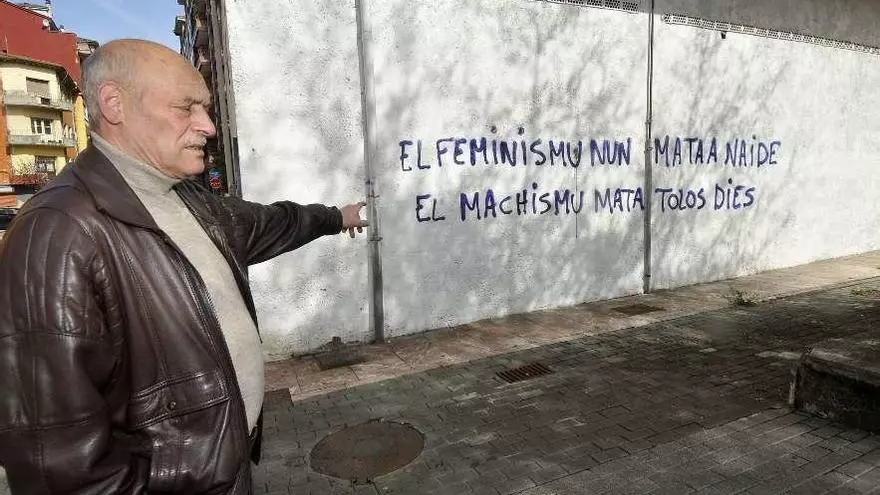 EL FEMINISMU NUN MATA A NAIDE
EL MACHISMU MATA TOLOS DIES